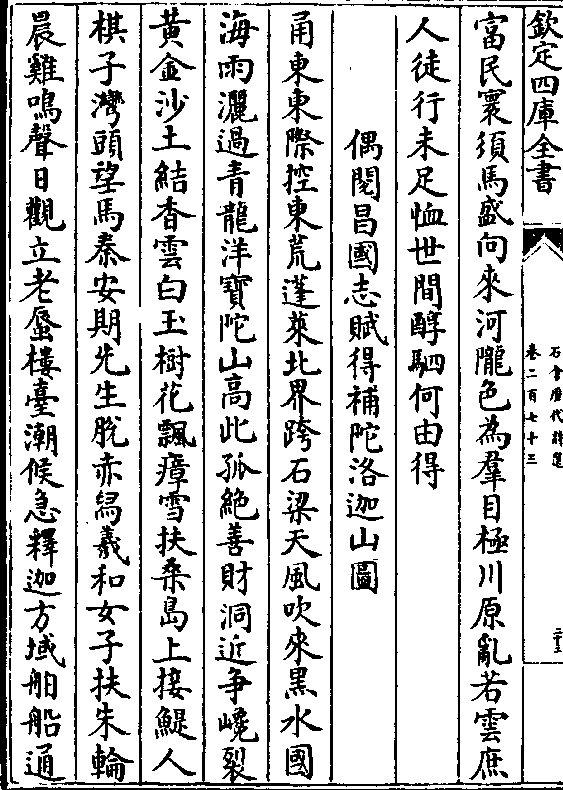 欽定四庫全書
石倉歷代詩選
卷二百七十三
二十三
富民寰須馬盛向來河隴色為羣目極川原亂若雲庶
人徒行未足恤世間醇駟何由得
偶閱昌國志賦得補陀洛迦山圖
甬東東際控東荒蓬萊北界跨石梁天風吹來黑水國
海雨灑過青龍洋寶陀山高此孤絶善財洞近爭嶢裂
黃金沙土結香雲白玉樹花飄瘴雪扶桑島上接鯷人
棋子灣頭望馬秦安期先生脫赤舄羲和女子扶朱輪
晨雞鳴聲日觀立老蜃樓臺潮候急釋迦方域舶船通